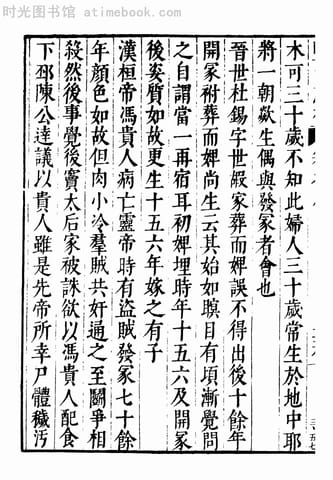 时光图书馆 atimebook.com
木可三十歲不知此婦人三十歲常生於地中耶
將一朝歘生偶與發冢者會也
晉世杜錫字世嘏家葬而婢誤不得出後十餘年
開冢祔葬而婢尚生云其始如瞑目有頃漸覺問
之自謂當一再宿耳初婢埋時年十五六及開冢
後姿質如故更生十五六年嫁之有子
漢桓帝馮貴人病亡靈帝時有盜賊發冢七十餘
年顏色如故但肉小冷羣賊共奸通之至鬬爭相
殺然後事覺後竇太后家被誅欲以馮貴人配食
下邳陳公達議以貴人雖是先帝所幸尸體穢污